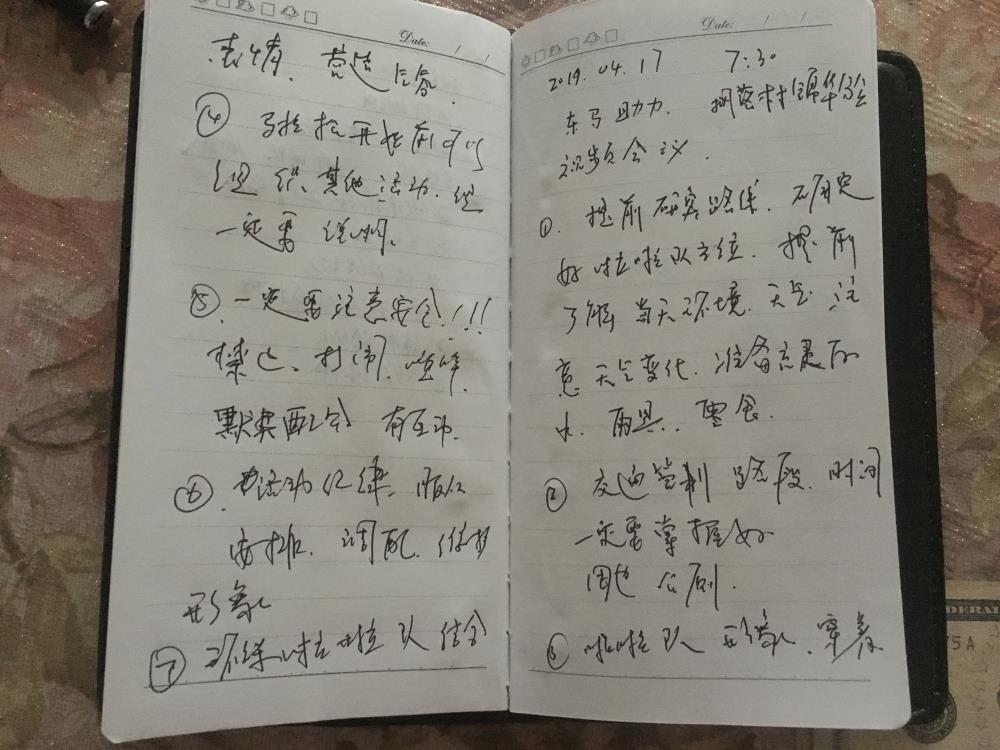 Date: / /
表情、营造气氛.
④ 马拉松开始前可以
组织其他活动,但
一定要统一
⑤. 一定要注意安全!!!
禁止、打闹、喧哗.
默契配合 有互动.
⑥. 活动纪律. 服从
安排. 调配. 维护
形象
⑦ 环保啦啦队结合
Date: / /
2019. 04. 17 7:30
东马助力.
视频会议.
①. 提前研究路线. 确定
好啦啦队方位. 提前
了解当天环境. 天气. 注
意天气变化. 准备充足的
水. 雨具. 零食.
② 交通管制 路段. 时间
一定要掌握好
周边公厕.
③ 啦啦队 形象. 穿着
DERAL
75A